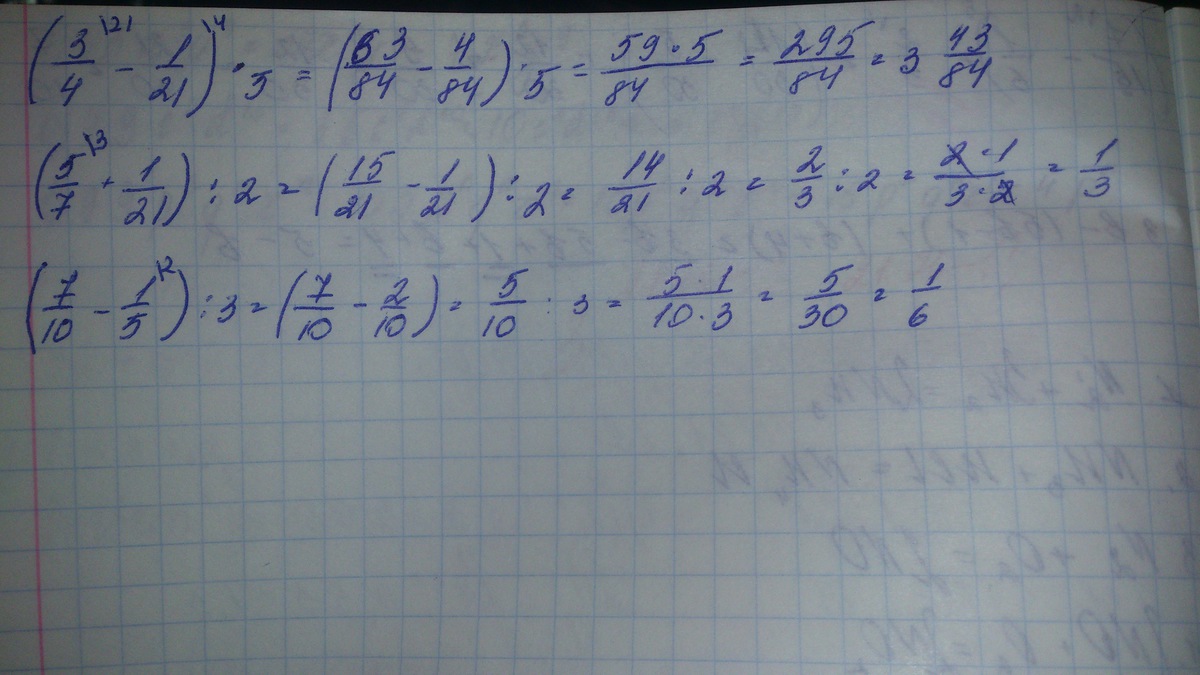 (3/4 \21 - 1/21 \4) · 5 = (63/84 - 4/84) · 5 = 59·5/84 = 295/84 = 3 43/84
(5/7 \3 + 1/21) : 2 = (15/21 - 1/21) : 2 = 14/21 : 2 = 2/3 : 2 = 2·1/3·2 = 1/3
(7/10 - 1/5 \2) : 3 = (7/10 - 2/10) = 5/10 : 3 = 5·1/10·3 = 5/30 = 1/6